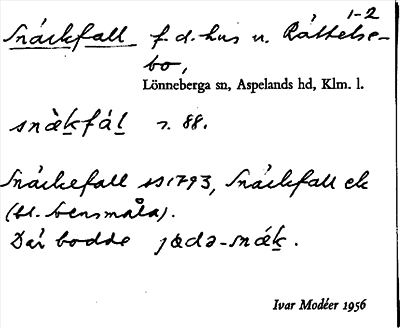 1-2
Snäckfall f.d. hus u. Råttelse-
bo,
Lönneberga sn, Aspelands hd, Klm. l.
snæ̀k̲fál̲ s. 88.
Snäckefall 1793, Snäckfall ek
(bl. Svensmåla).
Där bodde jɑdə-snǽk̲.
Ivar Modéer 1956